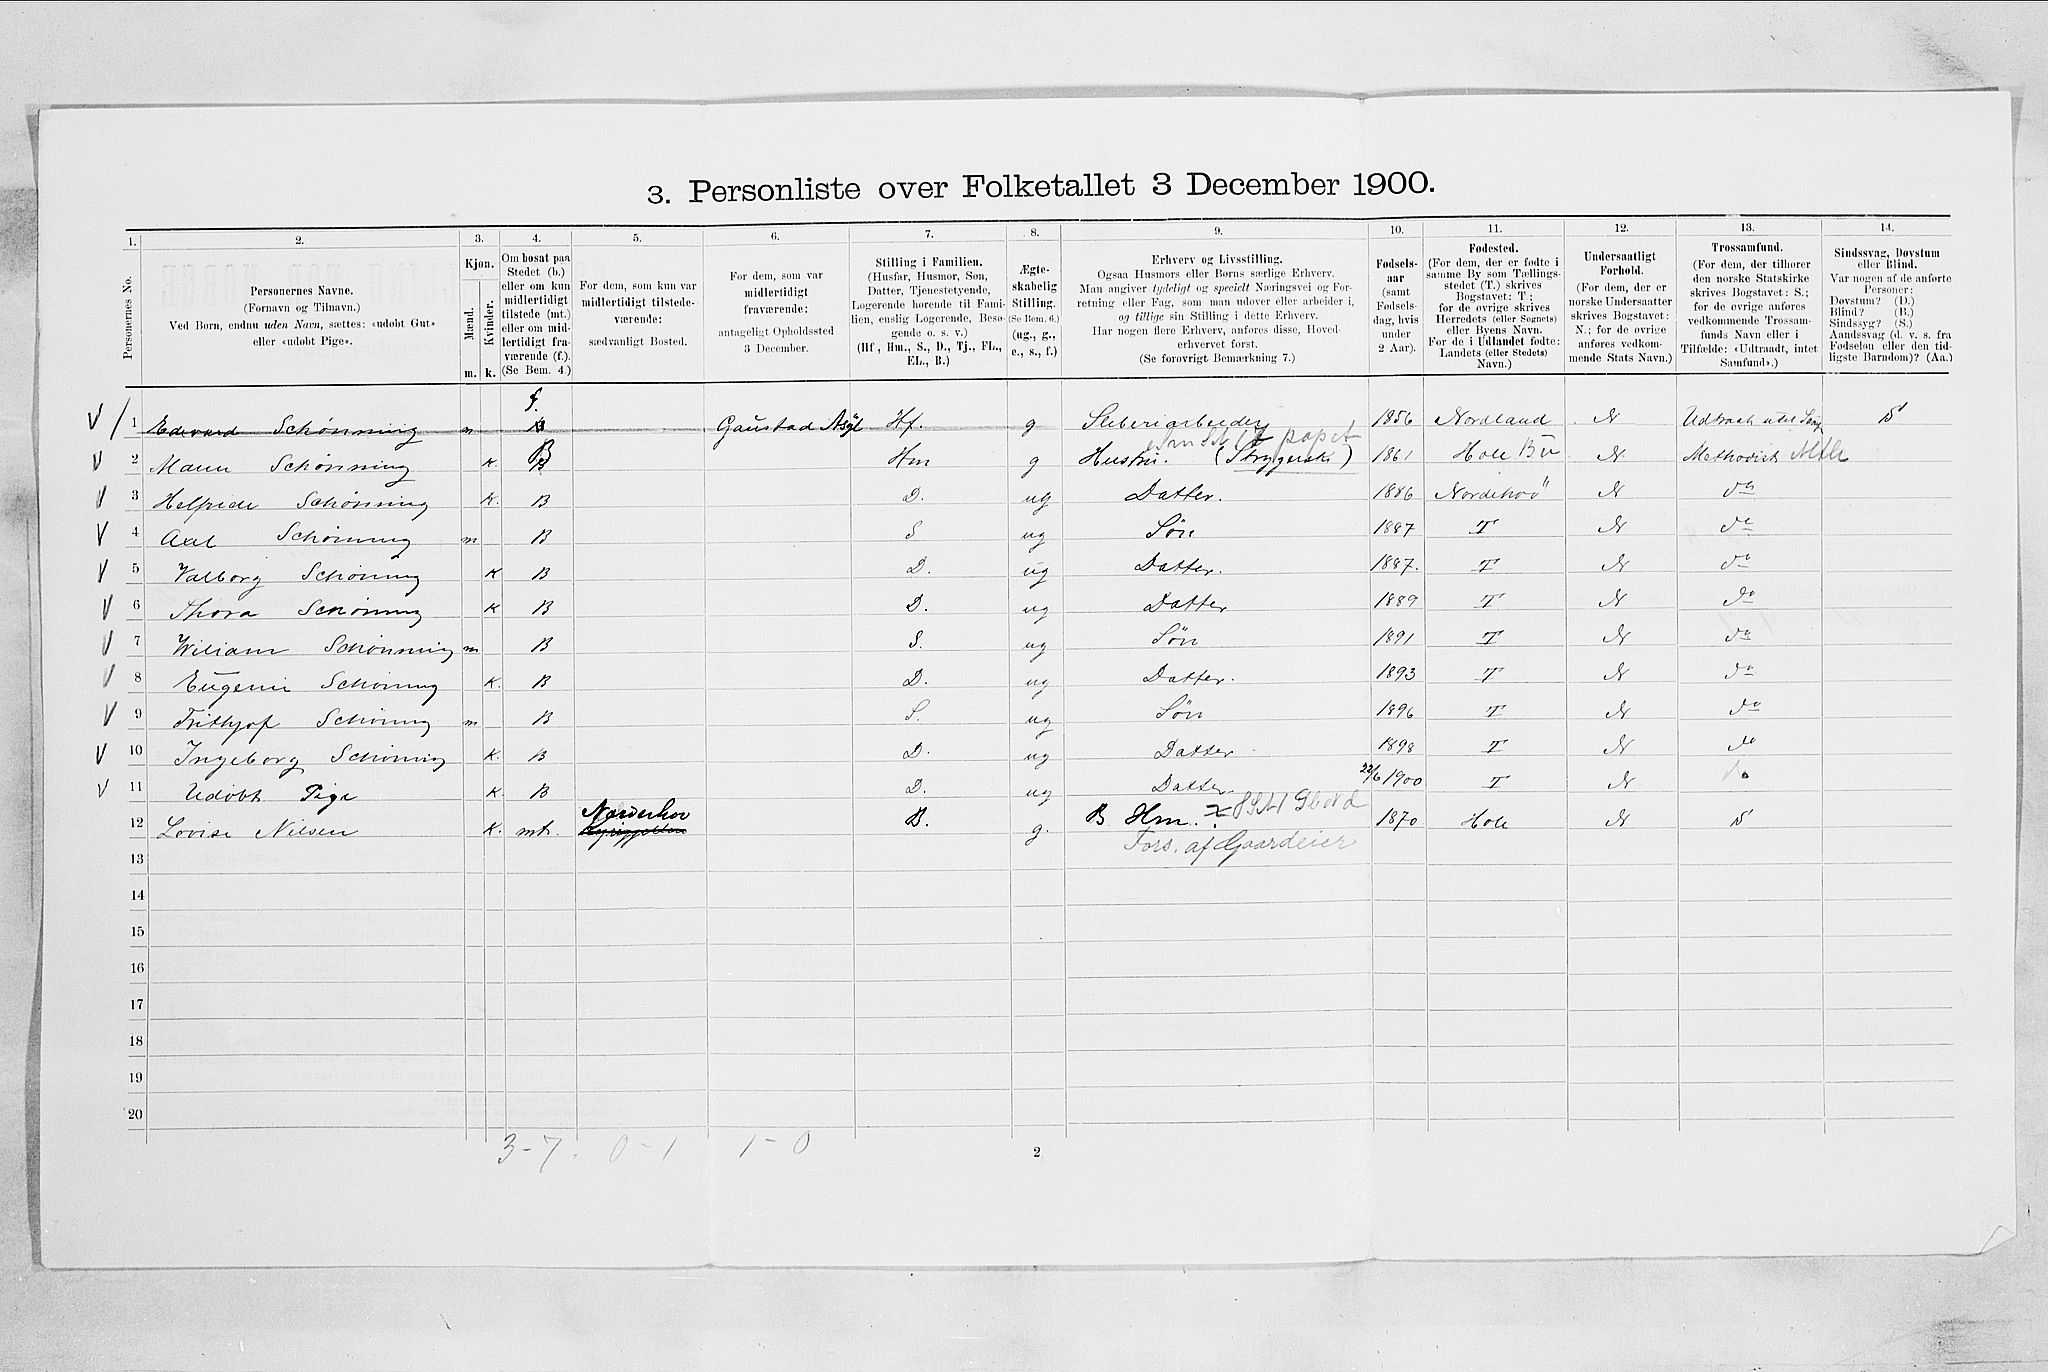 3. Personliste over Folketallet 3 December 1900.
1. 2. 3. 4. 5. 6. 7. 8. 9. 10. 11. 12. 13. 14.
Personernes No.
Personernes Navne.
(Fornavn og Tilnavn.)
Ved Børn, endnu uden Navn, sættes: «udøbt Gut»
eller «udøbt Pige».
Kjøn.
Mænd.
Kvinder.
m. k.
Om bosat paa
Stedet (b.)
eller om kun
midlertidigt
tilstede (mt.)
eller om mid-
lertidigt fra-
værende (f.).
(Se Bem. 4.)
For dem, som kun var
midlertidigt tilstede-
værende:
sædvanligt Bosted.
For dem, som var
midlertidigt
fraværende:
antageligt Opholdssted
3 December.
Stilling i Familien.
(Husfar, Husmor, Søn,
Datter, Tjenestetyende,
Logerende hørende til Fami-
lien, enslig Logerende, Besø-
gende o. s. v.)
(Hf., Hm., S., D., Tj., FL.,
EL., B.)
Ægte-
skabelig
Stilling.
(Se Bem. 6.)
(ug., g.,
e., s., f.)
Erhverv og Livsstilling.
Ogsaa Husmors eller Børns særlige Erhverv.
Man angiver tydeligt og specielt Næringsvei og For-
retning eller Fag, som man udøver eller arbeider i,
og tillige sin Stilling i dette Erhverv.
Har nogen flere Erhverv, anføres disse, Hoved-
erhvervet først.
(Se forøvrigt Bemærkning 7.)
Fødsels-
aar
(samt
Fødsels-
dag, hvis
under
2 Aar).
Fødested.
(For dem, der er fødte i
samme By som Tællings-
stedet (T.) skrives
Bogstavet: T.;
for de øvrige skrives
Herredets (eller Sognets)
eller Byens Navn.
For de i Udlandet fødte:
Landets (eller Stedets)
Navn.)
Undersaatligt
Forhold.
(For dem, der er
norske Undersaatter
skrives Bogstavet:
N.; for de øvrige
anføres vedkom-
mende Stats Navn.)
Trossamfund.
(For dem, der tilhører
den norske Statskirke
skrives Bogstavet: S.;
for de øvrige anføres
vedkommende Trossam-
funds Navn eller i
Tilfælde: «Udtraadt, intet
Samfund».)
Sindssvag, Døvstum
eller Blind.
Var nogen af de anførte
Personer:
Døvstum? (D.)
Blind? (B.)
Sindssyg? (S.)
Aandssvag (d. v. s. fra
Fødselen eller den tid-
ligste Barndom)? (Aa.)
f.
1 Edevard Schønning m Gaustad Asyl Hf. g 1856 Nordland N S
2 Schønning K. B Hm g Hustru. 1861 Hole N Methodist
3 Schønning K. B D. ug Datter. 1886 N do
4 Axel Schønning m B S ug Søn 1887 T N do
5 Valborg Schønning K B D. ug Datter. 1887. T N do
6 Thora Schønning K B D. ug Datter 1889 T N do
7 Wiliam Schønning m B S. ug Søn 1891 T N do
8 Eugenie Schønning K. B D. ug Datter. 1893 T N do
9 Frithjof Schønning m B S. ug Søn 1896 T N do
10 Ingeborg Schønning K. B D. ug Datter 1898 T N do
11 Udøbt Pige K. B D. ug Datter 22/6 1900 T N do
Norderhov
12 Lovise Nilsen K. mt. B. g. B Hm. 1870 Hole N S
13 Fors. af Gaardeier
14
15
16
17
18
19
20
3-7. 0-1 1-0
2